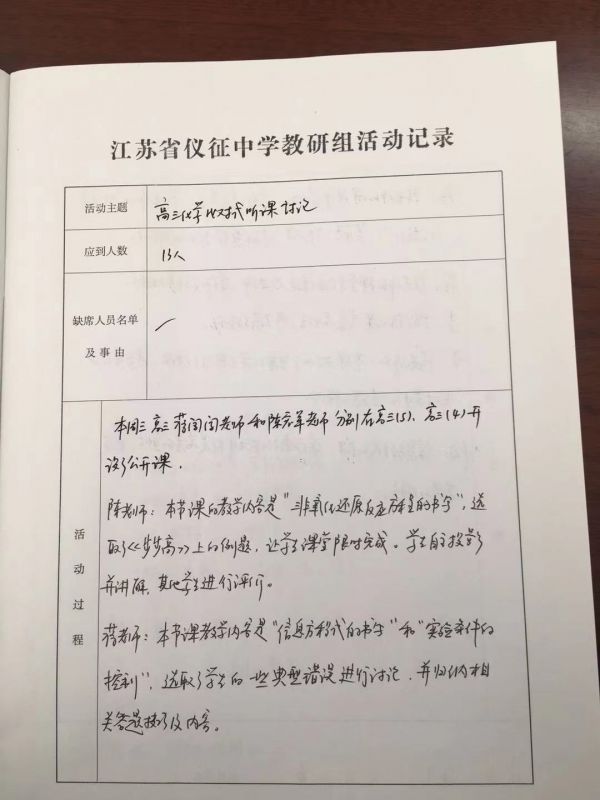 江苏省仪征中学教研组活动记录
活动主题 高三化学 听课讨论
应到人数 13人
缺席人员名单
及事由
活动过程
本周三高三蒋闰闰老师和陈宏军老师分别在高三(5)、高三(4)开
设了公开课.
陈老师：本节课的教学内容是"非氧化还原反应方程的书写"，选
取了《步步高》上的例题，让学生课堂限时完成。学生自主投影
并讲解，其他学生进行评价。
蒋老师：本节课教学内容是"信息方程式的书写"和"实验条件的
控制"，选取了学生的一些典型错误进行讨论，并归纳相
关答题技巧及内容。